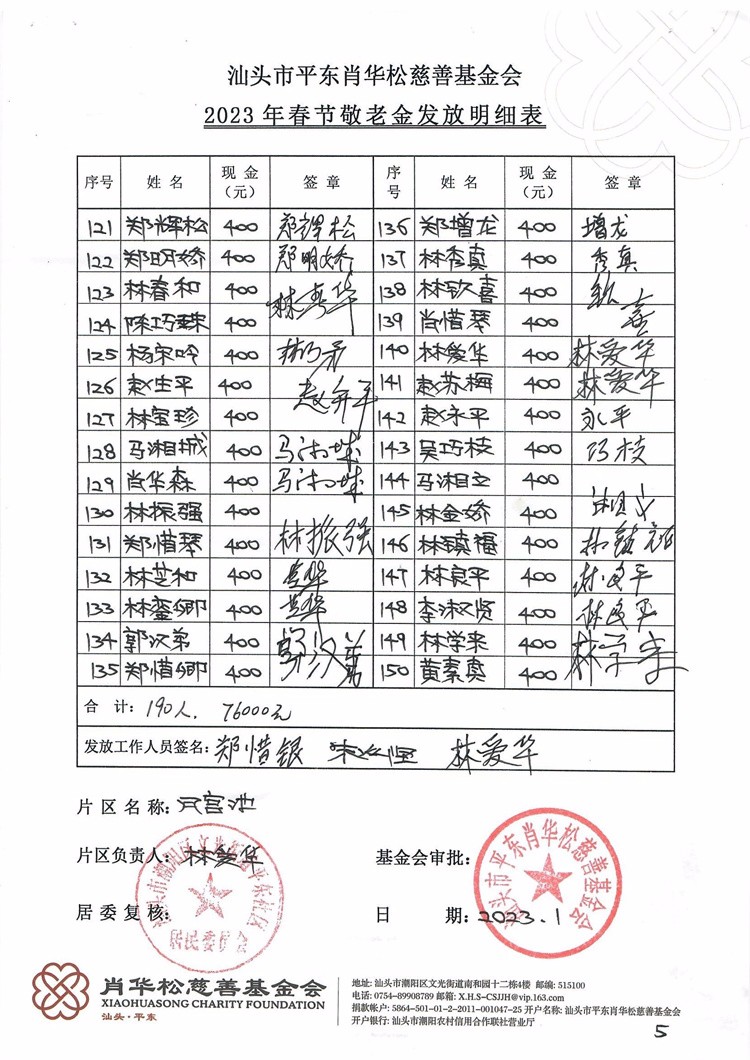 汕头市平东肖华松慈善基金会
2023年春节敬老金发放明细表
序号 姓名 现金(元) 签章 序号 姓名 现金(元) 签章
121 郑辉松 400 郑辉松 136 郑增龙 400 增龙
122 郑明娇 400 郑明娇 137 林秀真 400 秀真
123 林春和 400 林春华 138 林欽喜 400
124 陈巧 400 139 肖惜琴 400
125 杨宋吟 400 140 林爱华 400 林爱华
126 赵生平 400 赵 平 141 赵苏梅 400 林爱华
127 林宝珍 400 142 赵永平 400 永平
128 马湘城 400 马湘城 143 吴巧枝 400 巧枝
129 肖华森 400 马湘城 144 马湘立 400
130 林振强 400 145 林金娇 400
131 郑惜琴 400 林振强 146 林镇福 400 林镇福
132 林芝和 400 147 林良平 400 林良平
133 林銮卿 400 148 李淑贤 400 林良平
134 郭汉弟 400 郭汉弟 149 林学来 400 林学来
135 郑惜卿 400 150 黄素真 400
合 计: 190人. 76000元
发放工作人员签名: 郑惜银 林爱华
片区名称: 宫池
片区负责人: 林爱华
基金会审批:
居委复核:
日 期: 2023.1
居民委员会
汕头市平东肖华松慈善基金会
肖华松慈善基金会
XIAOHUASONG CHARITY FOUNDATION
汕头·平东
地址: 汕头市潮阳区文光街道南和园十二栋4楼 邮编: 515100
电话: 0754-89908789 邮箱: X.H.S-CSJJH@vip.163.com
捐款帐户: 5864-501-01-2-2011-001047-25 开户名称: 汕头市平东肖华松慈善基金会
开户银行: 汕头市潮阳农村信用合作联社营业厅
5